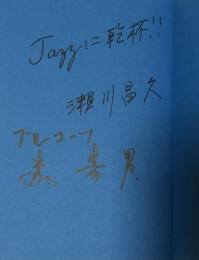 Jazzに乾杯!!
瀬川昌久
ブルコーツ